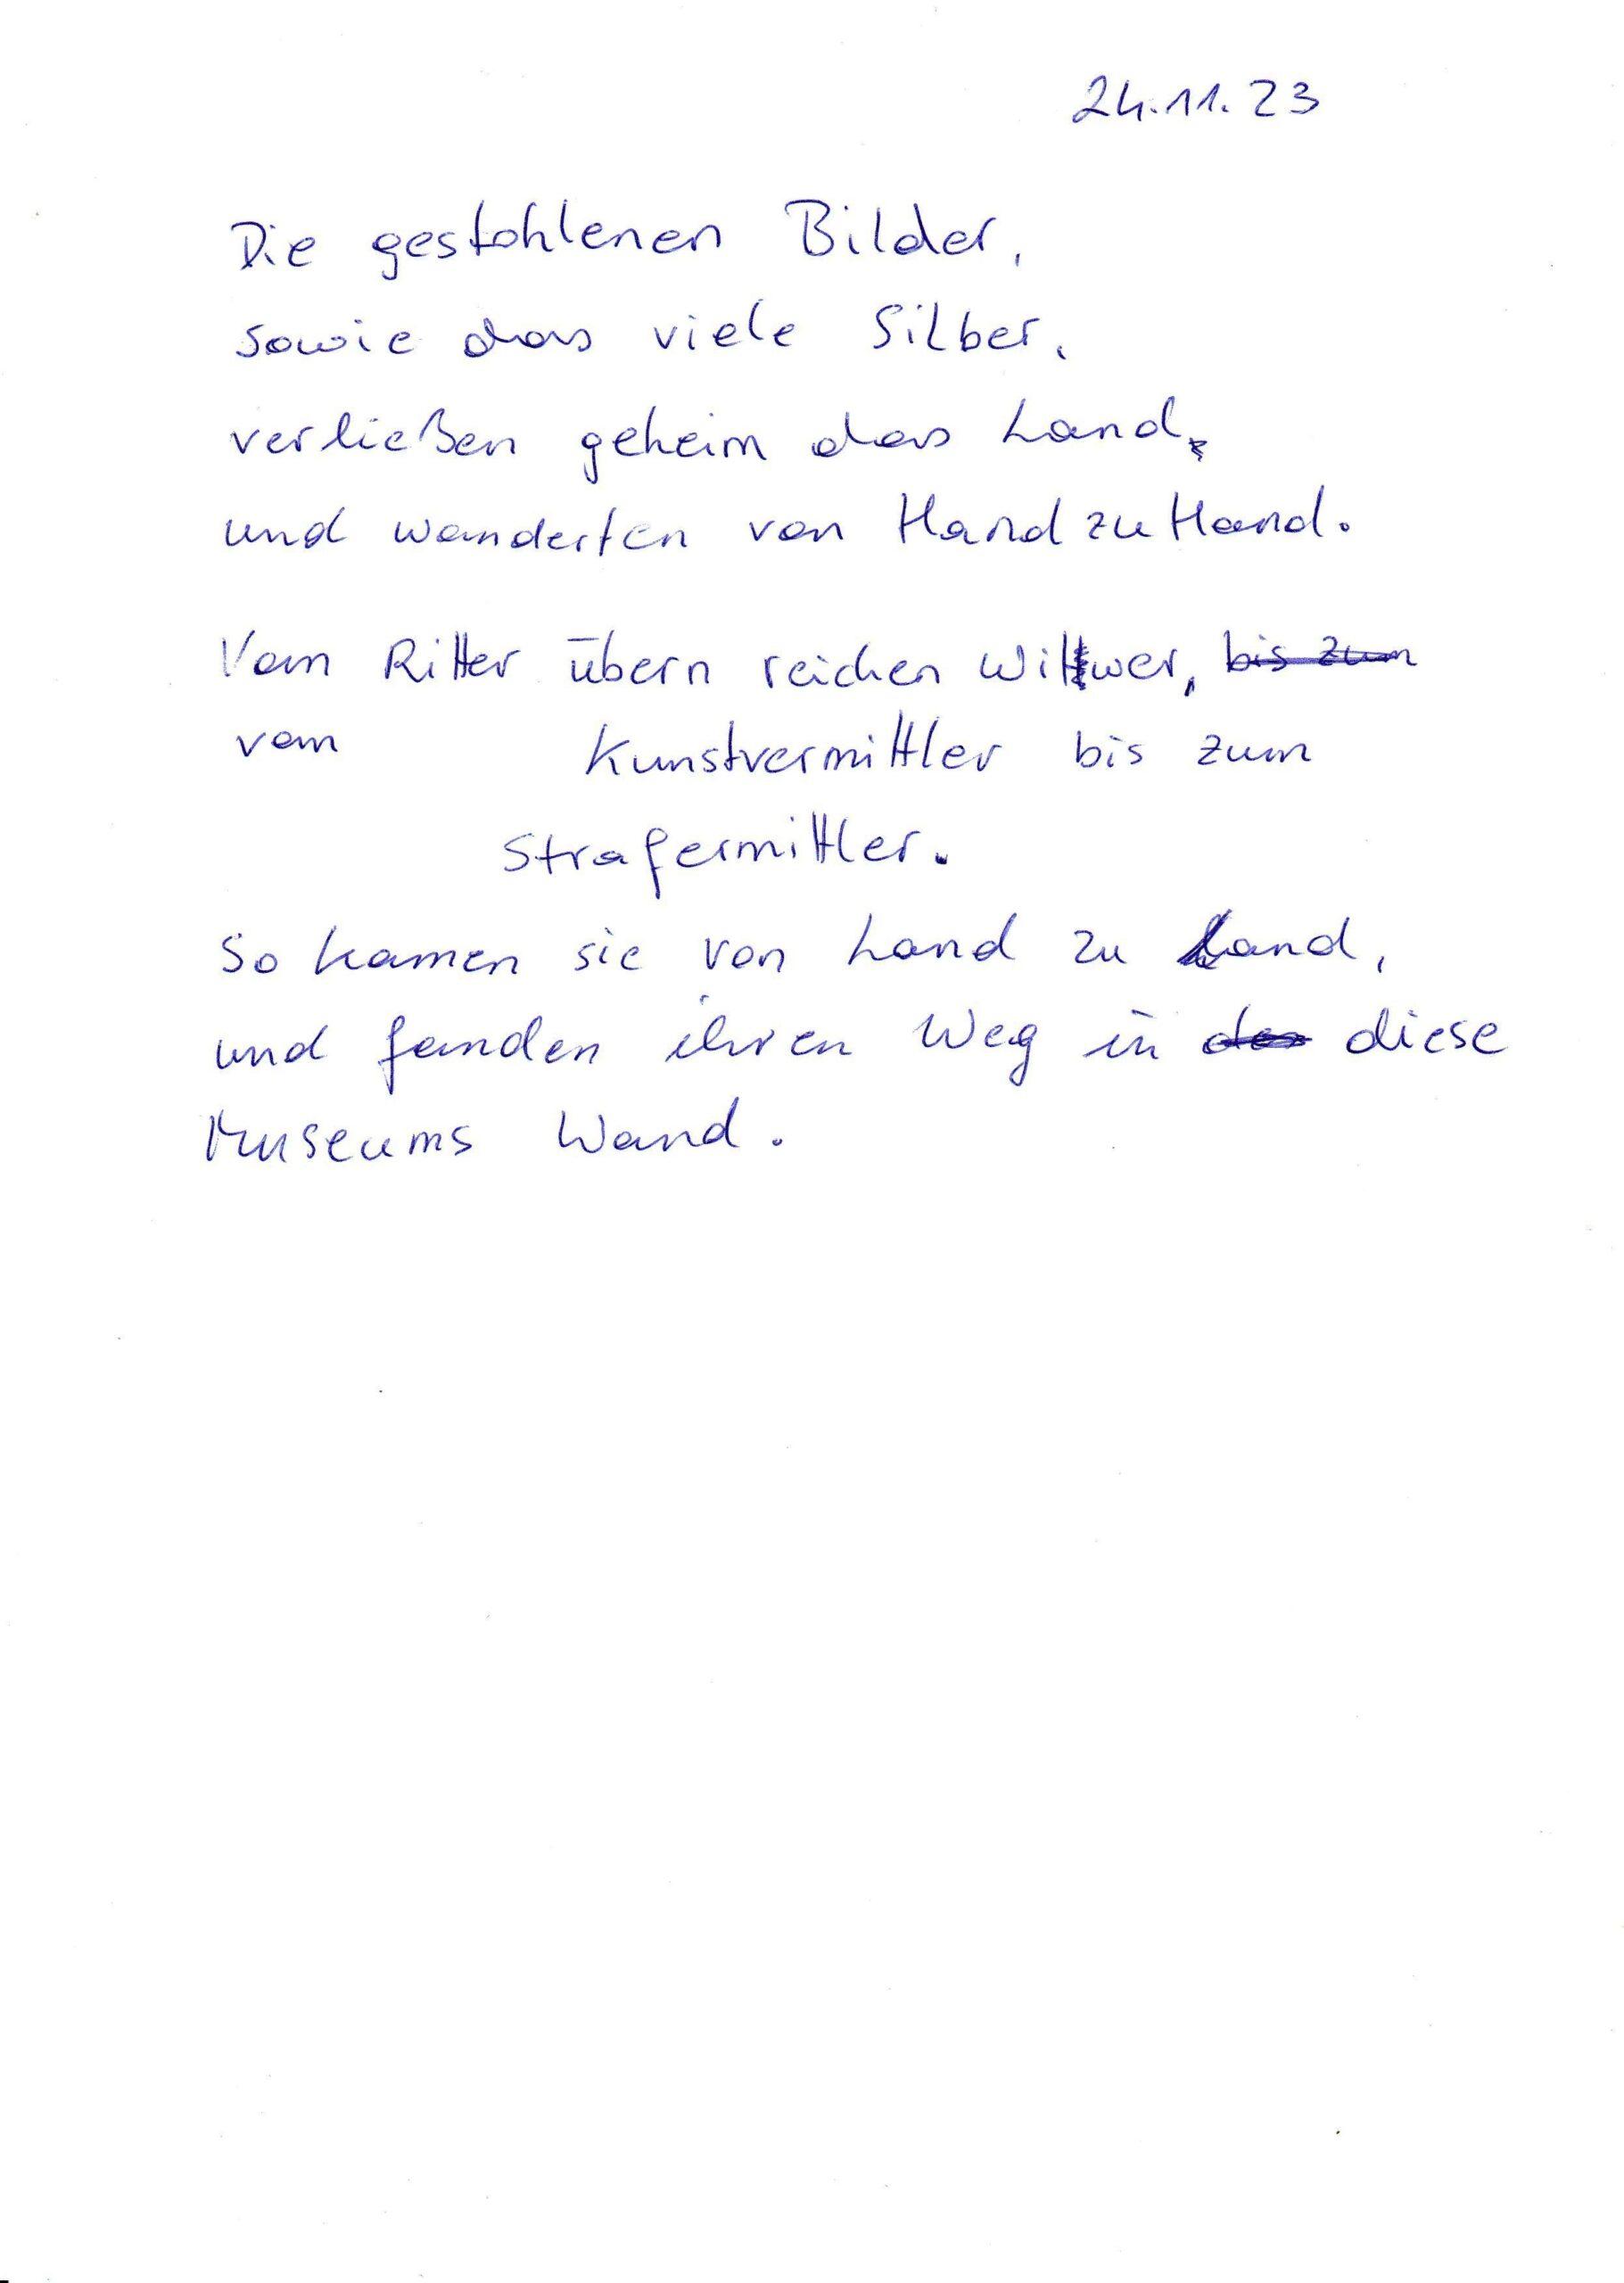 24.11.23
Die gestohlenen Bilder,
sowie das viele Silber,
verließen geheim das Land,
und wanderten von Hand zu Hand.
Vom Ritter übern reichen Wittwer, bis zum
vom Kunstvermittler bis zum
Strafermittler.
So kamen sie von Land zu Land,
und fanden ihren Weg in das diese
Museums Wand.